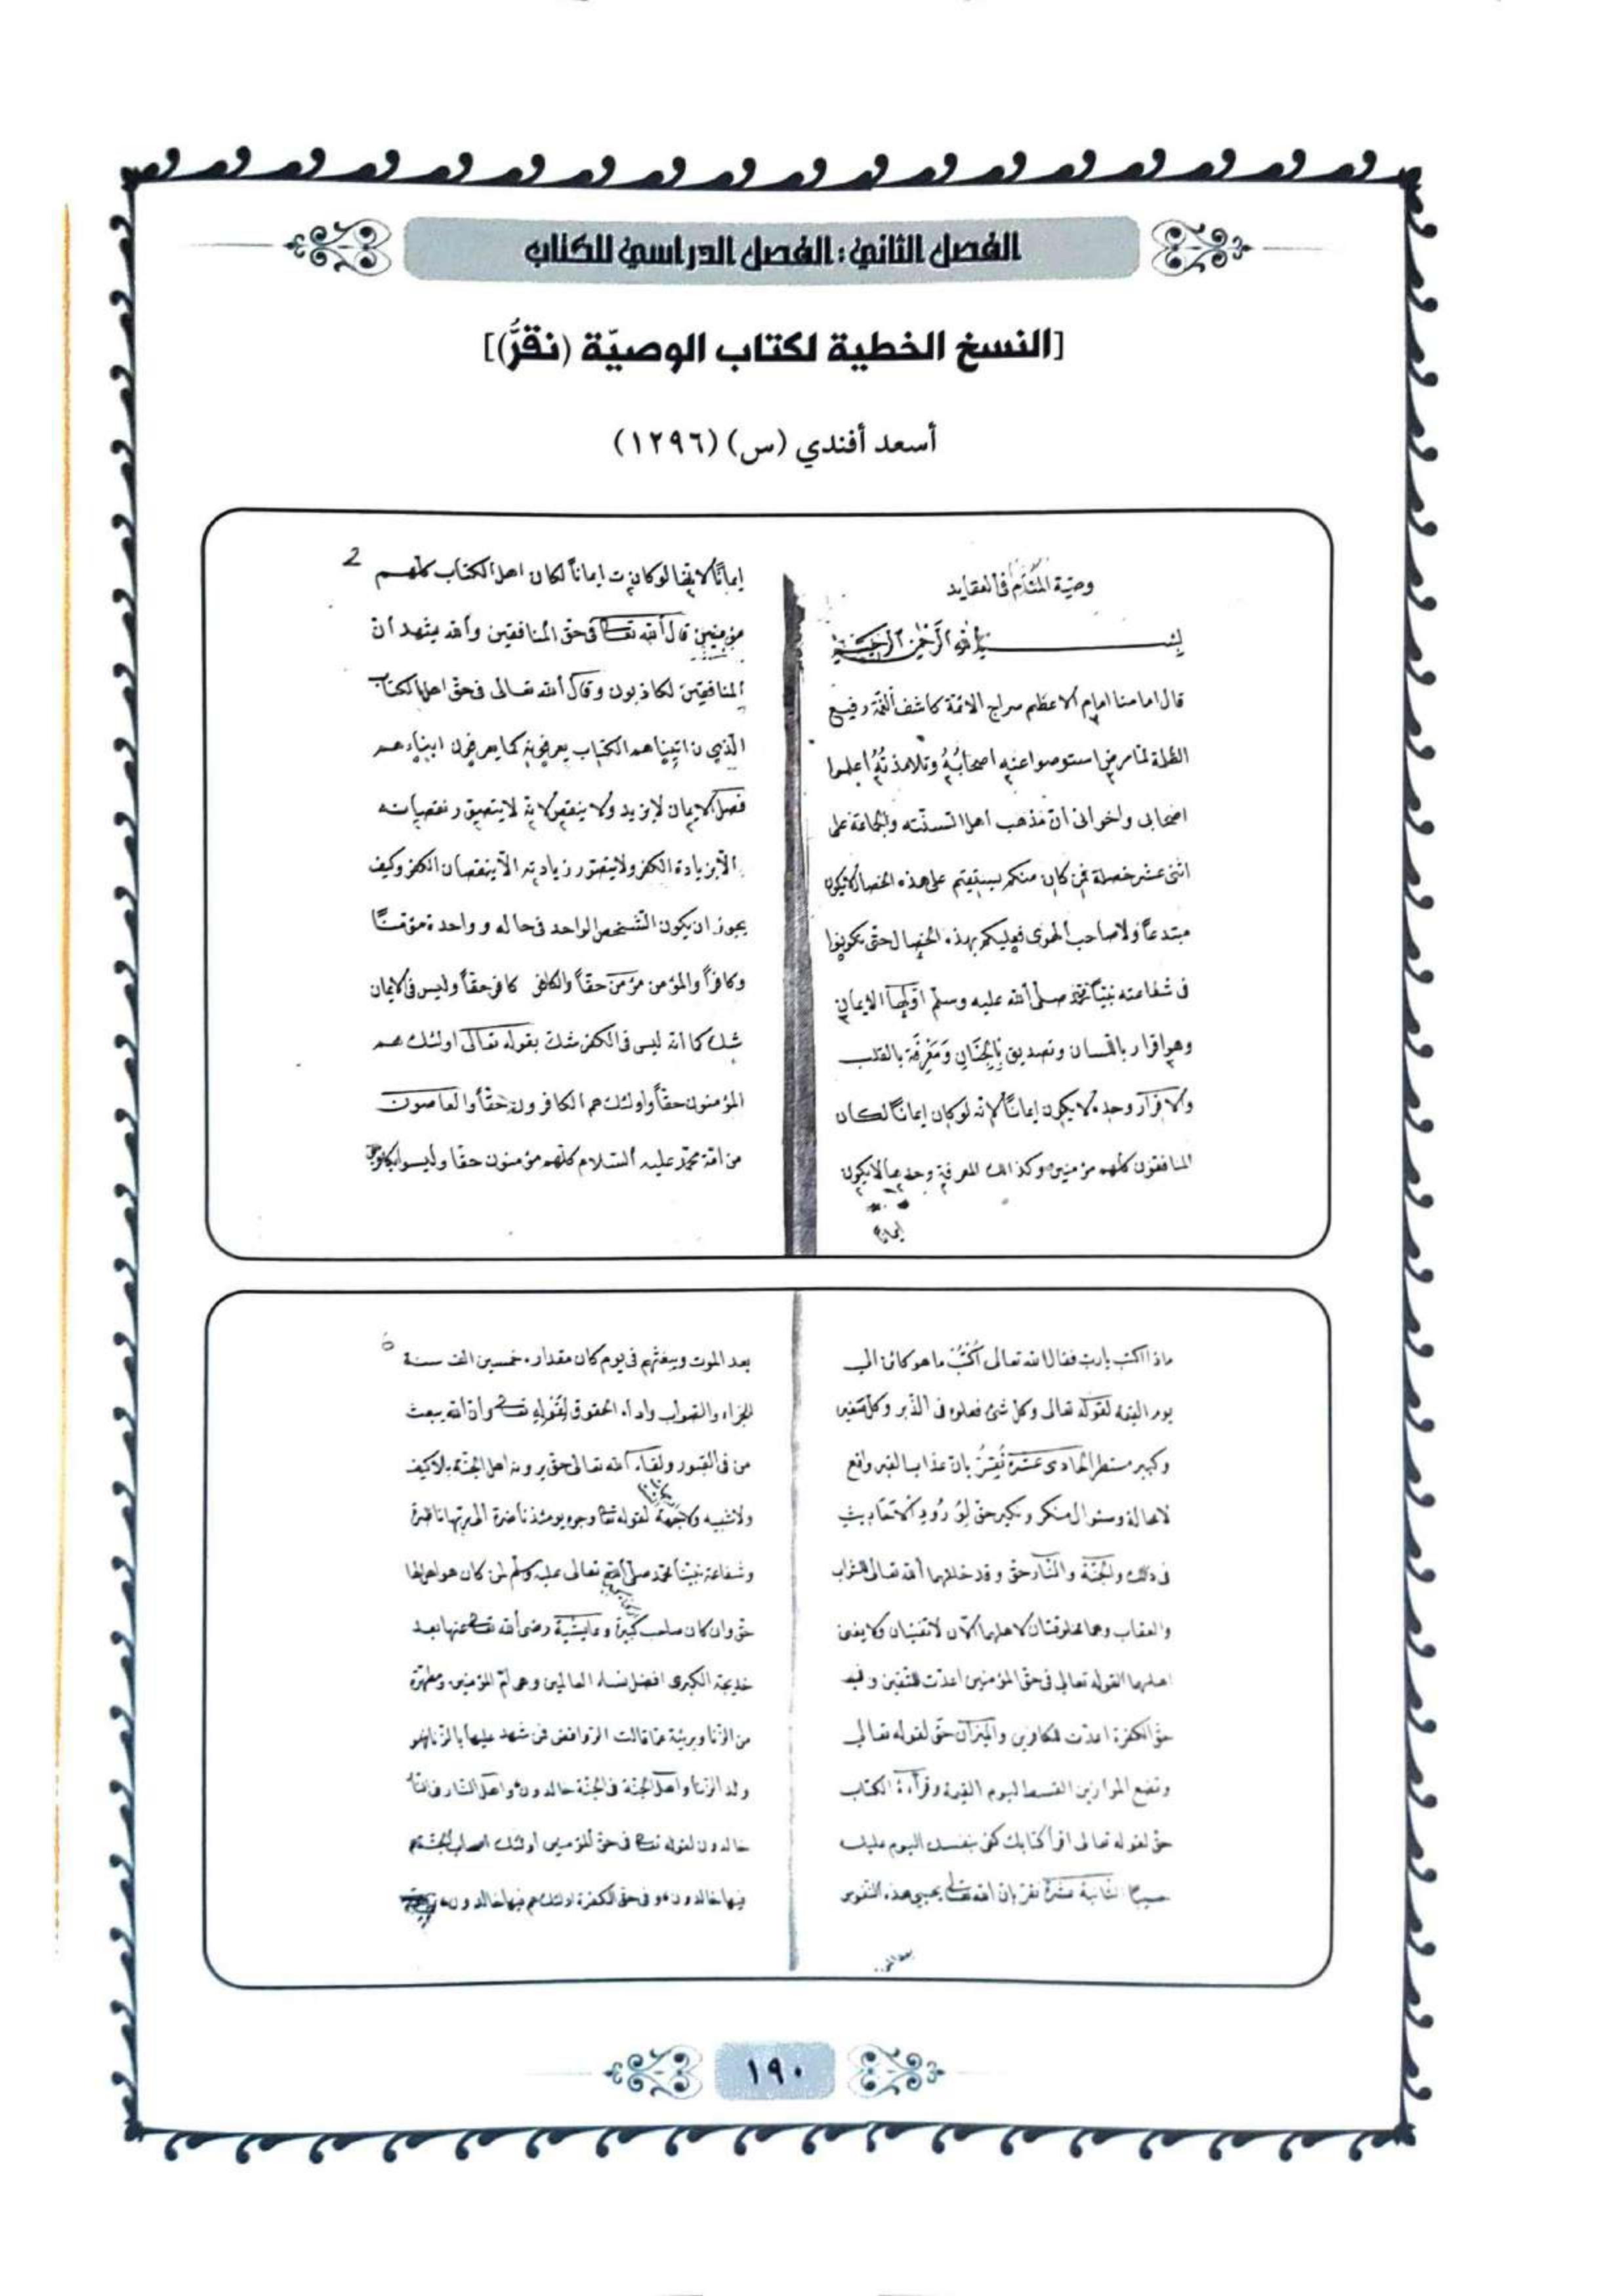 الفصل الثاني: الفصل الدراسي للكتاب
[النسخ الخطية لكتاب الوصيّة (نقرُّ)]
أسعد أفندي (س) (١٢٩٦)
وصية في العقايد
بسم الله الرحمن الرحيم
قال امامنا امام الاعظم سراج الائمة كاشف الغمة رفيع
الظلة لما مرض استوصوا عنه اصحابُهُ وتلامذتُهُ اعلموا
اصحابى واخوانى ان مذهب اهل السنته والجماعة على
اثنى عشر خصلة فمن كان منكم يستقيم على هذه الخصال لايكون
مبتدعاً ولا صاحب الهوى فعليكم بهذه الخصال حتى تكونوا
فى شفاعته نبينا محمد صلى الله عليه وسلم اولها الايمان
وهو اقرار باللسان وتصديق بالجنان ومعرفة بالقلب
والاقرار وحده لا يكون ايماناً لانه لو كان ايماناً لكان
المنافقون كلهم مؤمنين وكذالك المعرفة وحدها لايكون
ايمانا
2
ايماناً لانها لو كانت ايماناً لكان اهل الكتاب كلهم
مؤمنين قال الله تعالى فى حق المنافقين والله يشهد ان
المنافقين لكاذبون وقال الله تعالى فى حق اهل الكتاب
الذين اتيناهم الكتاب يعرفونه كما يعرفون ابناءهم
فصل الايمان لا يزيد ولا ينقص لانه لا يتصور نقصيانه
الا بزيادة الكفر ولا يتصور زيادته الا بنقصان الكفر وكيف
يجوز ان يكون الشخص الواحد فى حاله وواحدة مؤمناً
وكافراً والمؤمن مؤمن حقاً والكافر كافر حقاً وليس فى الايمان
شك كما انه ليس فى الكفر شك بقوله تعالى اولئك هم
المؤمنون حقاً واولئك هم الكافرون حقاً والعاصون
من امة محمد عليه السلام كلهم مؤمنون حقا وليسوا بكافرين
ماذا اكتب يا رب فقال الله تعالى اُكْتُبْ ما هو كائن الى
يوم القيمة لقوله تعالى وكل شئ فعلوه فى الذبر وكل صغير
وكبير مستطر الحادى عشرة نُقِرُّ بان عذاب القبر واقع
لا محالة وسئوال منكر ونكير حق لورود الاحاديث
فى ذلك والجنة والنار حق وقد خلقهما الله تعالى للثواب
والعقاب وهما مخلوقتان لاهلهما الان لا تفنيان ولا يفنى
اهلهما القوله تعالى فى حق المؤمنين اعدت للمتقين وفى
حق الكفرة اعدت للكافرين والميزان حق لقوله تعالى
ونضع الموازين القسط ليوم القيمة وقرأءة الكتاب
حق لقوله تعالى اقرأ كتابك كفى بنفسك اليوم عليك
حسيبا الثانية عشرة نقر بان الله تعالى يحيى هذه النفوس
بعد الموت
بعد الموت ويبعثهم فى يوم كان مقداره خمسين الف سنة
للجزاء والثواب واداء الحقوق لقوله تعالى وان الله يبعث
من فى القبور ولقاء الله تعالى حق يرونه اهل الجنة بلا كيف
ولا شبيه ولا جهة لقوله تعالى وجوه يومئذ ناضرة الى ربها ناظرة
وشفاعة نبينا محمد صلى الله تعالى عليه وسلم لمن كان هو اهل لها
حق وان كان صاحب كبيرة وعايشة رضى الله تعالى عنها بعد
خديجة الكبرى افضل نساء العالمين وهى ام المؤمنين ومطهرة
من الزنا وبريئة عما قالت الروافض فمن شهد عليها بالزنا فهو
ولد الزنا واهل الجنة فى الجنة خالدون واهل النار فى النار
خالدون لقوله تعالى فى حق المؤمنين اولئك اصحاب الجنة هم
فيها خالدون وفى حق الكفرة اولئك هم فيها خالدون
١٩٠